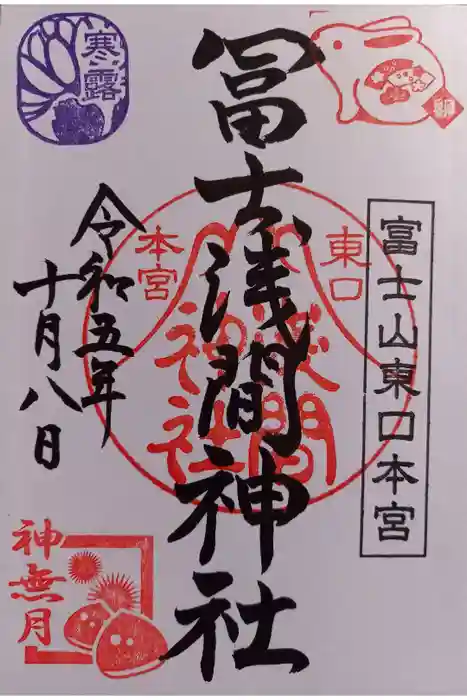 冨士浅間神社
富士山東口本宮
東口
本宮
浅間
神社
令和五年
十月八日
寒露
神無月